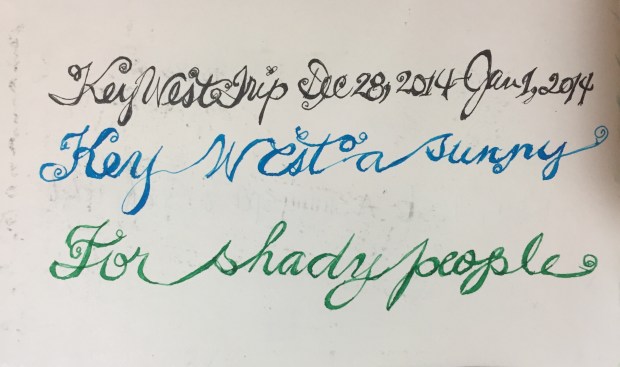 Key West Trip Dec 28, 2014 - Jan 1, 2014
Key West a sunny
For shady people